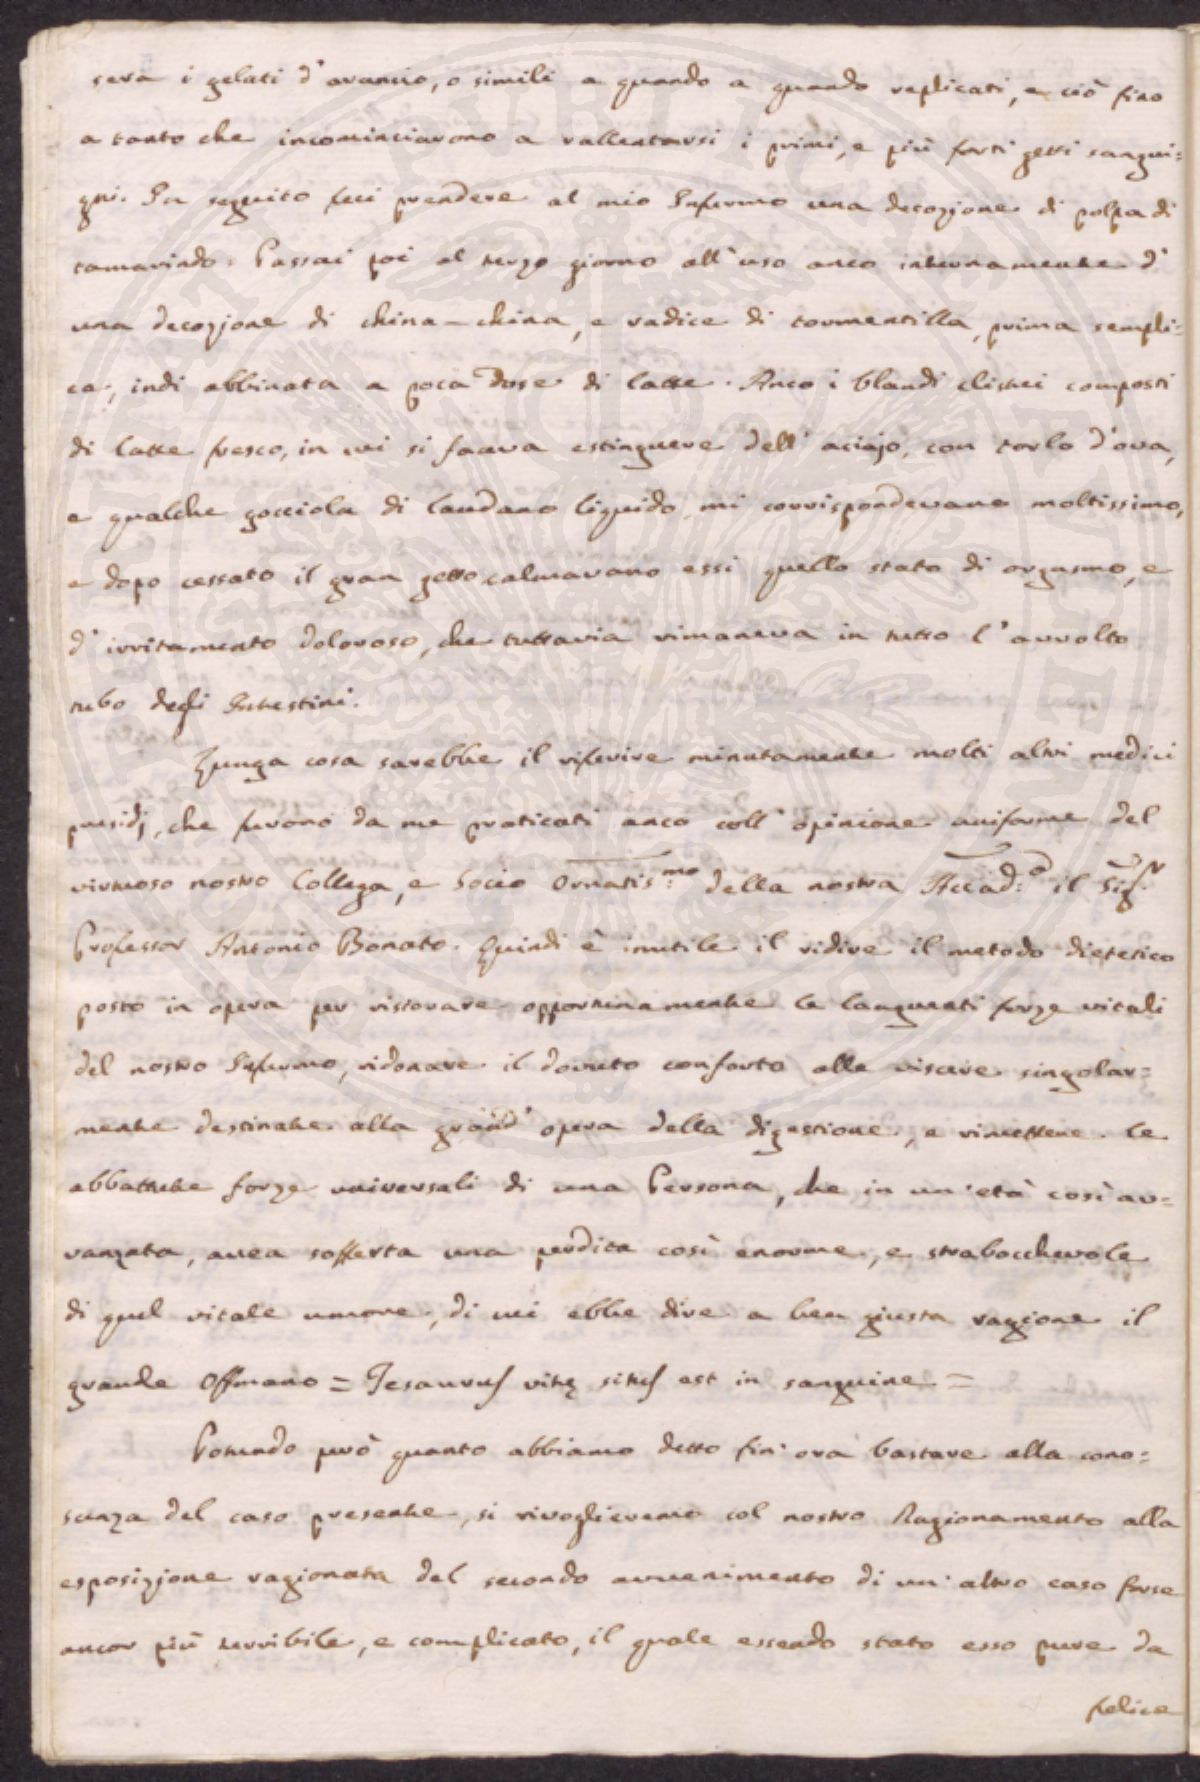 sera i gelati d'arancio, o simili a quando a quando replicati, e ciò fino
a tanto che incominciarono a rallentarsi i primi, e più forti getti sangui=
gni. In seguito feci prendere al mio Infermo una decozione di polpa di
tamarindo. Passai poi al terzo giorno all'uso anco internamente d'
una decozione di china-china, e radice di tormentilla, prima sempli=
ce, indi abbinata a poca dose di latte. Anco i blandi clisteri composti
di latte fresco, in cui si faceva estinguere dell'aciajo, con torlo d'ova,
e qualche gocciola di laudano liquido mi corrispondevano moltissimo,
e dopo cessato il gran getto calmavano essi quello stato di orgasmo, e
d'irritamento doloroso, che tuttavia rimaneva in tutto l'avvolto
tubo degli Intestini.
Lunga cosa sarebbe il riferire minutamente molti altri medici
presidj, che furono da me praticati anco coll'opinione uniforme del
virtuoso nostro Collega, e Socio Ornatis:mo della nostra Accad:a il Sig.r
Professor Antonio Bonato. Quindi è inutile il ridire il metodo dietetico
posto in opera per ristorare opportunamente le languenti forze vitali
del nostro Infermo, ridonare il dovuto conforto alle viscere singolar=
mente destinate alla grand'opera della digestione, e rimettere le
abbattute forze universali di una Persona, che in un'età così av=
vanzata, avea sofferta una perdita così enorme, e strabocchevole
di quel vitale umore, di cui ebbe dire a ben giusta ragione il
grande Offmano = Tesaurus vitę situs est in sanguine =
Potendo però quanto abbiamo detto fin'ora bastare alla cono=
scenza del caso presente, si rivoglieremo col nostro Ragionamento alla
esposizione ragionata del secondo avvenimento di un'altro caso forse
ancor più terribile, e complicato, il quale essendo stato esso pure da
felice